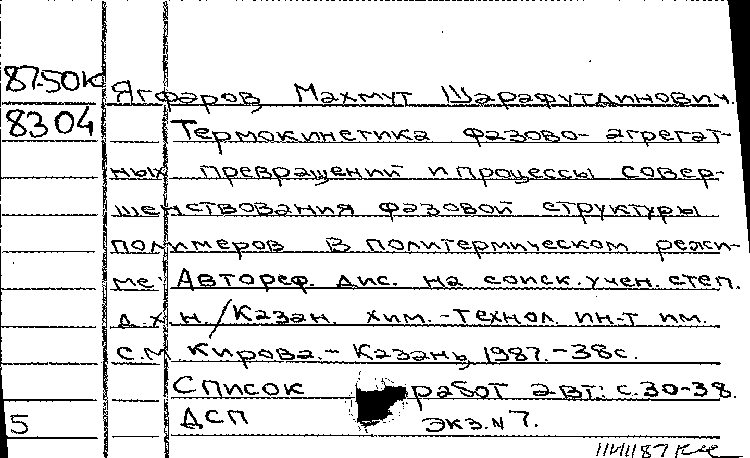 87-50к
Ягфаров Махмут Шарафутдинович.
8304
Термокинетика фазово-агрегат-
ных превращений и процессы совер-
шенствования фазовой структуры
полимеров в политермическом режи-
ме: Автореф. дис. на соиск. учен. степ.
д.х.н. / Казан. хим.-технол. ин-т им.
С.М. Кирова. - Казань, 1987. - 38с.
Список работ авт.: с. 30-38.
5 ДСП экз. № 7.